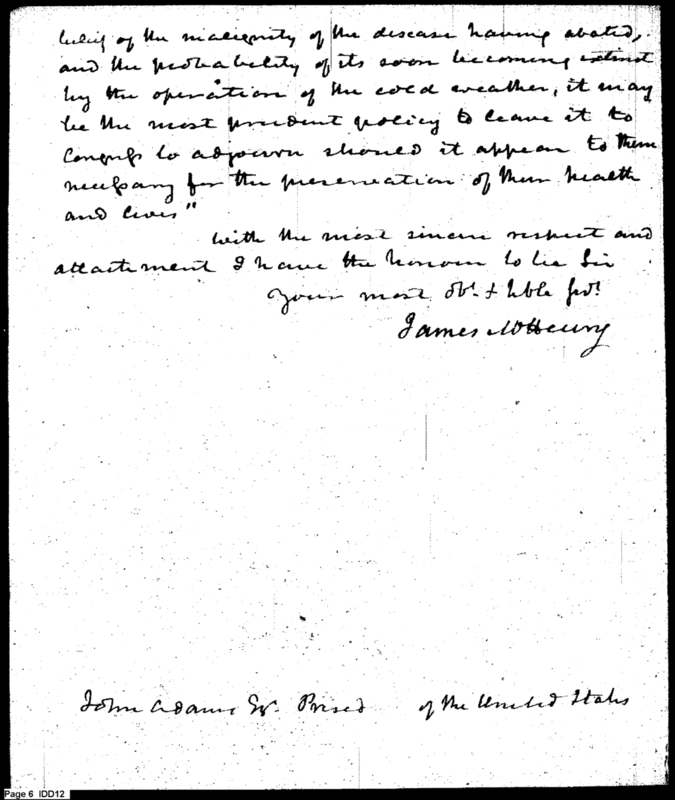 belief of the malignity of the disease having abated,
and the probability of its soon becoming extinct
by the operation of the cold weather, it may
be the most prudent policy to leave it to
Congress to adjourn should it appear to them
necessary for the preservation of their health
and lives"
With the most sincere respect and
attachment I have the honour to be Sir
Your most Obt. & hble Svt.
James McHenry
John Adams Esqr. Presid of the United States
Page 6 IDD12